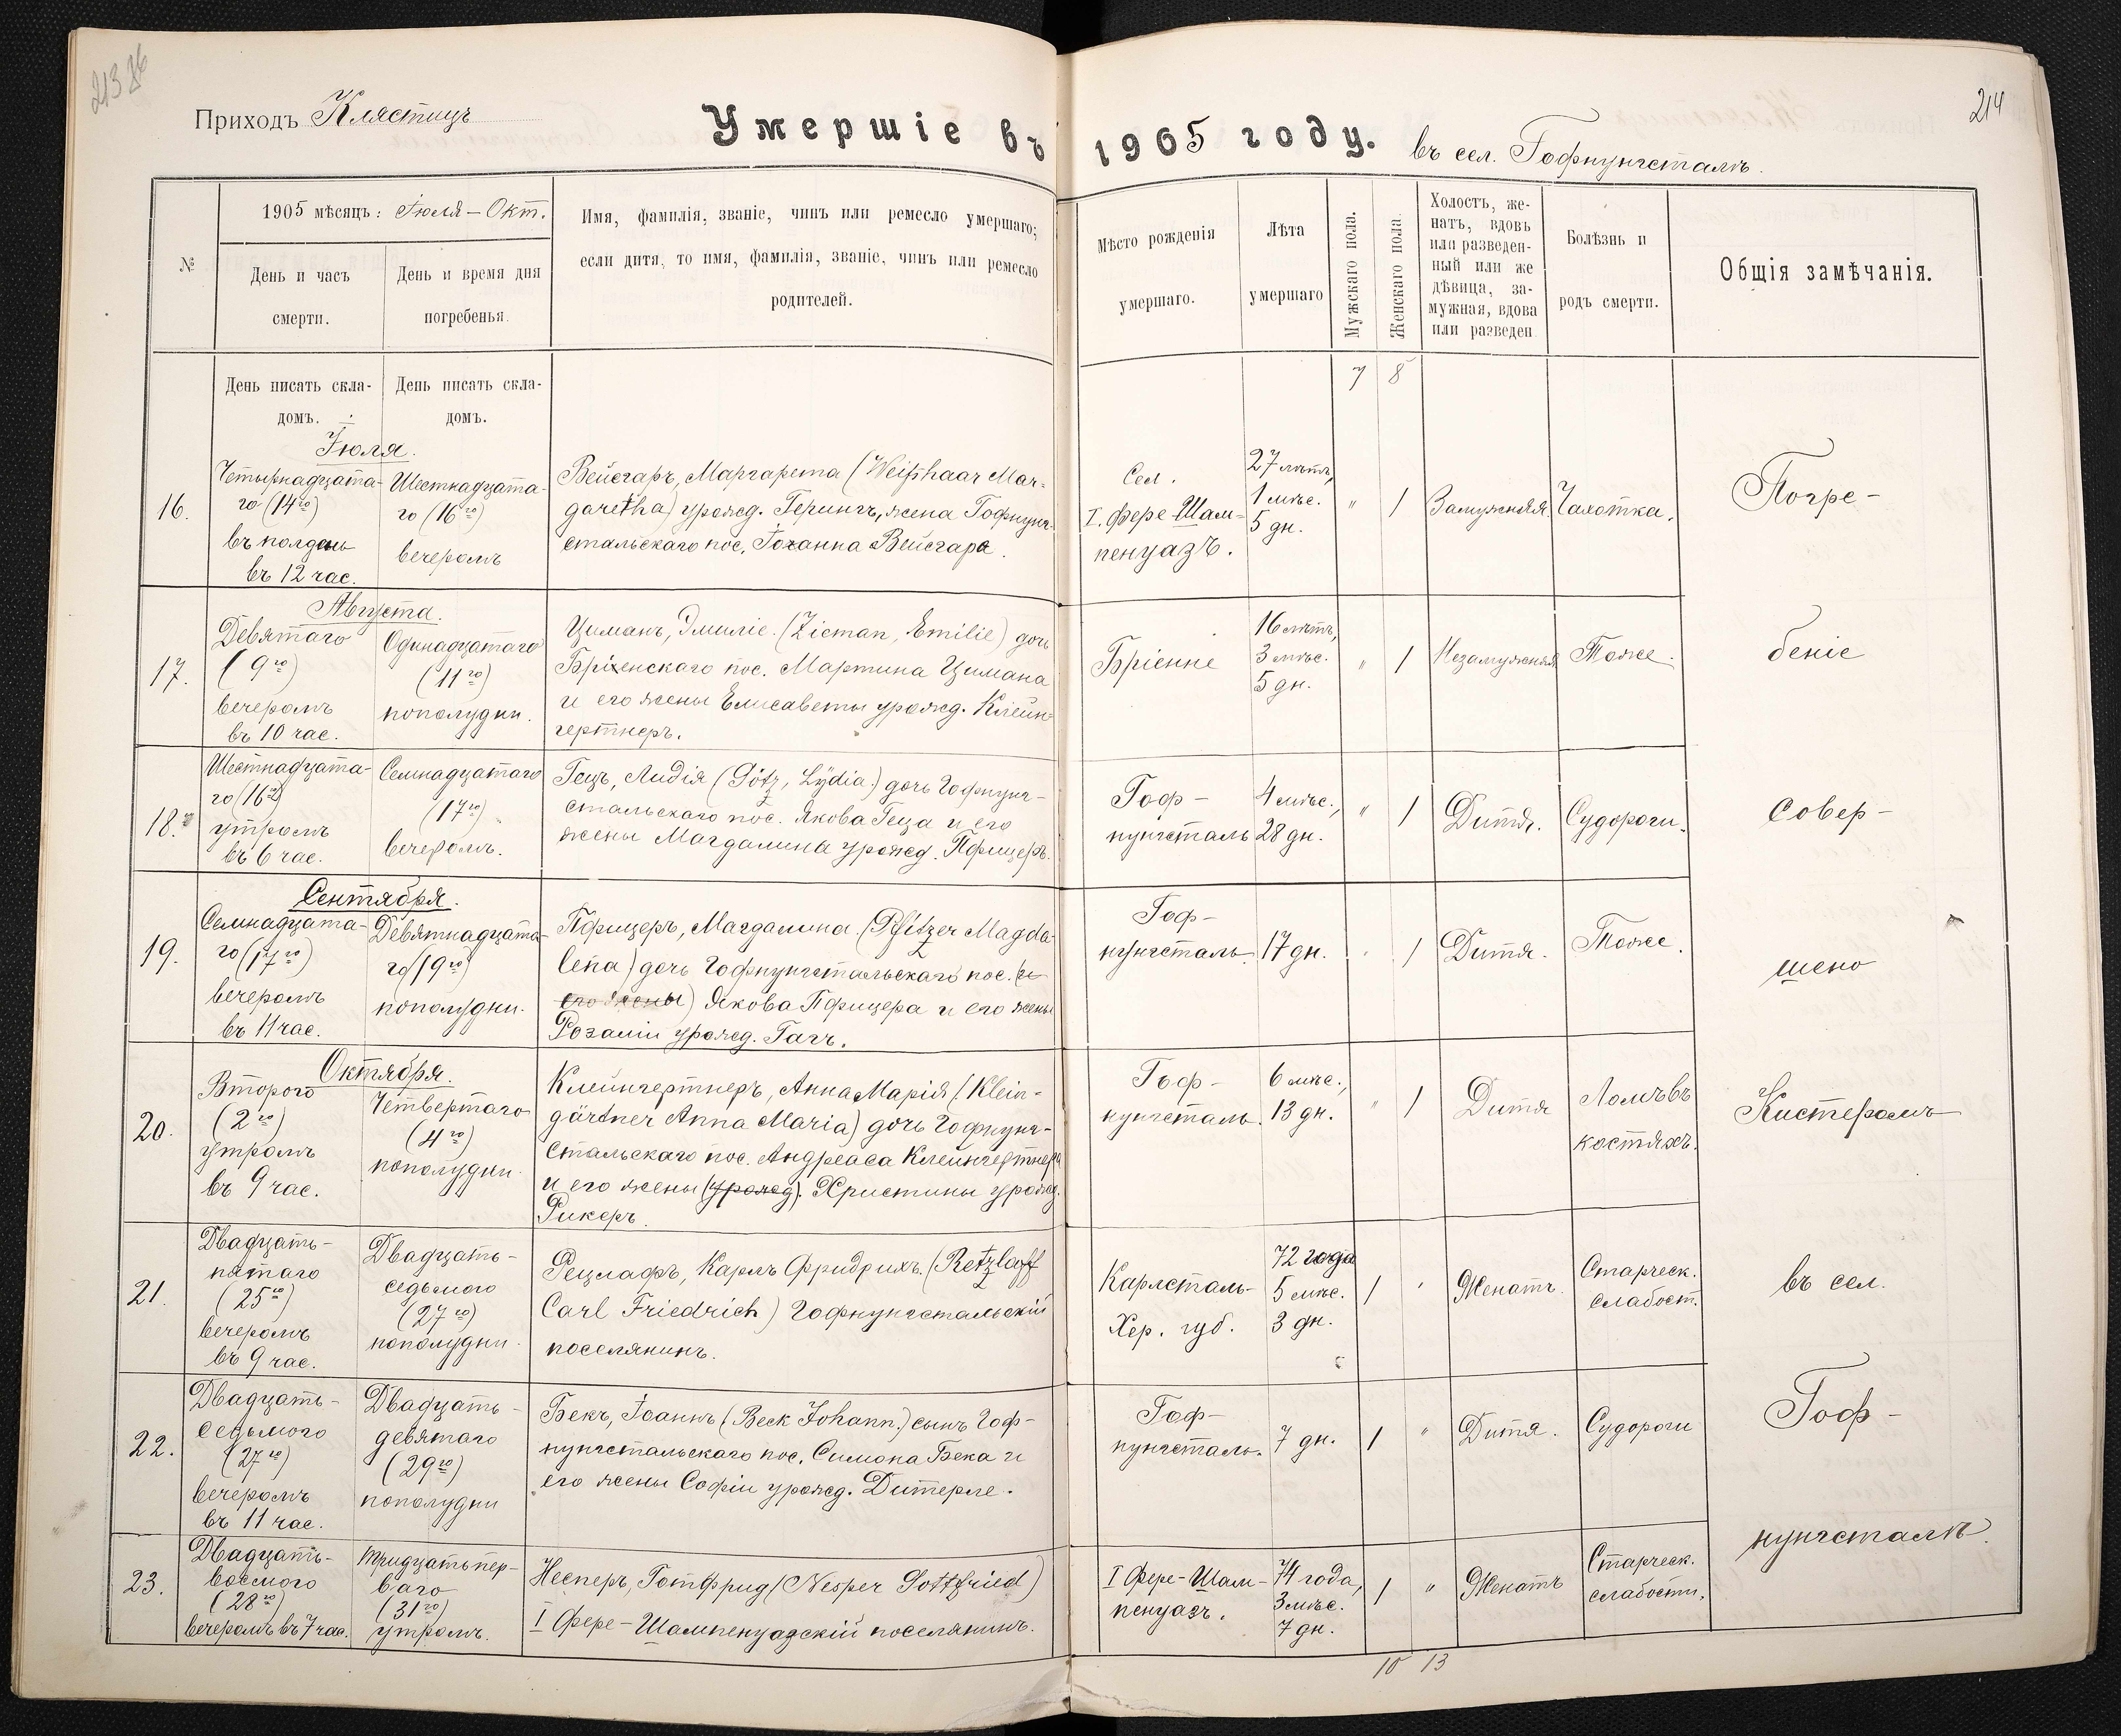 213 26
Приходъ Клястицъ
Умершіе въ 1905 году. въ сел. Гофнунгсталѣ.
214
№
1905 мѣсяцъ: Іюля – Окт.
День и часъ
смерти.
День и время дня
погребенья.
Имя, фамилія, званіе, чинъ или ремесло умершаго;
если дитя, то имя, фамилія, званіе, чинъ или ремесло
родителей.
Мѣсто рожденія
умершаго.
Лѣта
умершаго
Мужскаго пола.
Женскаго пола.
Холостъ, же-
натъ, вдовъ
или разведен-
ный или же
дѣвица, за-
мужная, вдова
или разведен
Болѣзнь и
родъ смерти.
Общія замѣчанія.
День писать скла-
домъ.
День писать скла-
домъ.
7 8
Іюля.
16.
Четырнадцата-
го (14го)
въ полдень
въ 12 час.
Шестнадцата-
го (16го)
вечеромъ
Вейсгаръ, Маргарета (Weißhaar Mar-
garetha) урожд. Герингъ, жена Гофнунг-
стальскаго пос. Іоханна Вейсгара.
Сел.
I. Фере-Шам-
пенуазъ.
27 лѣтъ,
1 мѣс.
5 дн.
" 1
Замужняя
Чахотка.
Погре-
Августа.
17.
Девятаго
(9го)
вечеромъ
въ 10 час.
Одинадцатаго
(11го)
пополудни.
Циманъ, Эмиліе. (Zieman, Emilie) дочь
Бріенскаго пос. Мартина Цимана
и его жены Елисаветы урожд. Клейн-
гертнеръ.
Бріенне
16 лѣтъ,
3 мѣс.
5 дн.
" 1
Незамужняя
Тоже.
беніе
18.
Шестнадцата-
го (16го)
утромъ
въ 6 час.
Семнадцатаго
(17го)
вечеромъ.
Гецъ, Лидія (Götz, Lydia.) дочь Гофнунг-
стальскаго пос. Якова Геца и его
жены Магдалина урожд. Пфицеръ.
Гоф-
нунгсталь
4 мѣс.,
28 дн.
" 1
Дитя.
Судороги.
совер-
Сентября.
19.
Семнадцата-
го (17го)
вечеромъ
въ 11 час.
Девятнадцата-
го (19го)
пополудни.
Пфицеръ, Магдалина. (Pfitzer Magda-
lena) дочь Гофнунгстальскаго пос. (и
его жены) Якова Пфицера и его жены
Розаліи урожд. Гагъ.
Гоф-
нунгсталь.
17 дн.
" 1
Дитя.
Тоже.
шено
Октября.
20.
Второго
(2го)
утромъ
въ 9 час.
Четвертаго
(4го)
пополудни.
Клейнгертнеръ, Анна Марія (Klein-
gärtner Anna Maria) дочь Гофнунг-
стальскаго пос. Андреаса Клейнгертнера
и его жены (урожд). Христины урожд.
Рикеръ.
Гоф-
нунгсталь.
6 мѣс.,
13 дн.
" 1
Дитя
Ломъ въ
костяхъ.
Кистеромъ
21.
Двадцать-
пятаго
(25го)
вечеромъ
въ 9 час.
Двадцать-
седьмого
(27го)
пополудни.
Рецлафъ, Карлъ Фридрихъ. (Retzlaff
Carl Friedrich) Гофнунгстальскій
поселянинъ.
Карлсталь-
Хер. губ.
72 года
5 мѣс.
3 дн.
1 "
Женатъ.
Старческ.
слабост.
въ сел.
22.
Двадцать-
седьмого
(27го)
вечеромъ
въ 11 час.
Двадцать-
девятаго
(29го)
пополудни
Бекъ, Іоаннъ (Beck Johann.) сынъ Гоф-
нунгстальскаго пос. Симона Бека и
его жены Софіи урожд. Дитерле.
Гоф-
нунгсталь.
7 дн.
1 "
Дитя.
Судороги
Гоф-
23.
Двадцать-
восмого
(28го)
вечеромъ въ 7 час.
Тридцать пер-
ваго
(31го)
утромъ.
Несперъ, Готфрид (Nesper Gottfried)
I Фере-Шампенуазскій поселянинъ.
I Фере-Шам-
пенуазъ.
74 года,
3 мѣс.
7 дн.
1 "
Женатъ
Старческ.
слабости.
нунгсталѣ.
10 13